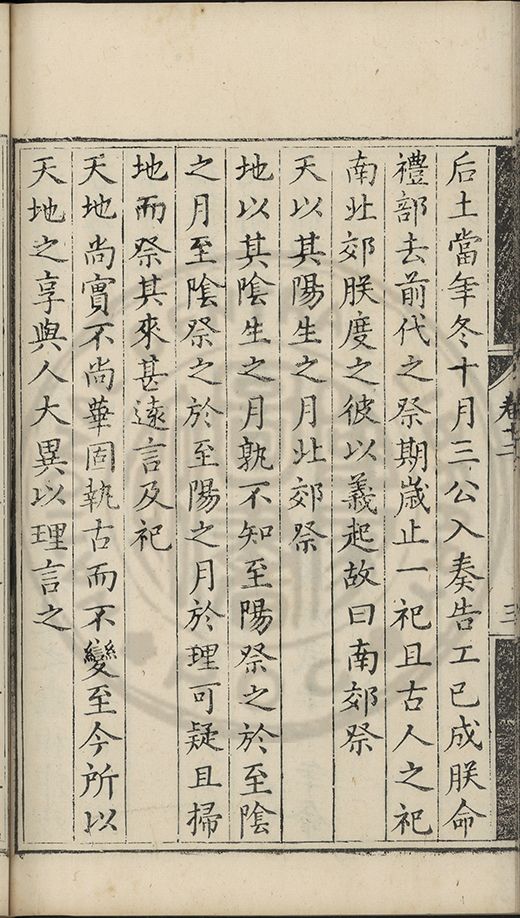 卷十二
三
后土當年冬十月三公入奏告工已成朕命
禮部去前代之祭期歲止一祀且古人之祀
南北郊朕度之彼以義起故曰南郊祭
天以其陽生之月北郊祭
地以其陰生之月孰不知至陽祭之於至陰
之月至陰祭之於至陽之月於理可疑且掃
地而祭其來甚遠言及祀
天地尚實不尚華固執古而不變至今所以
天地之享與人大異以理言之